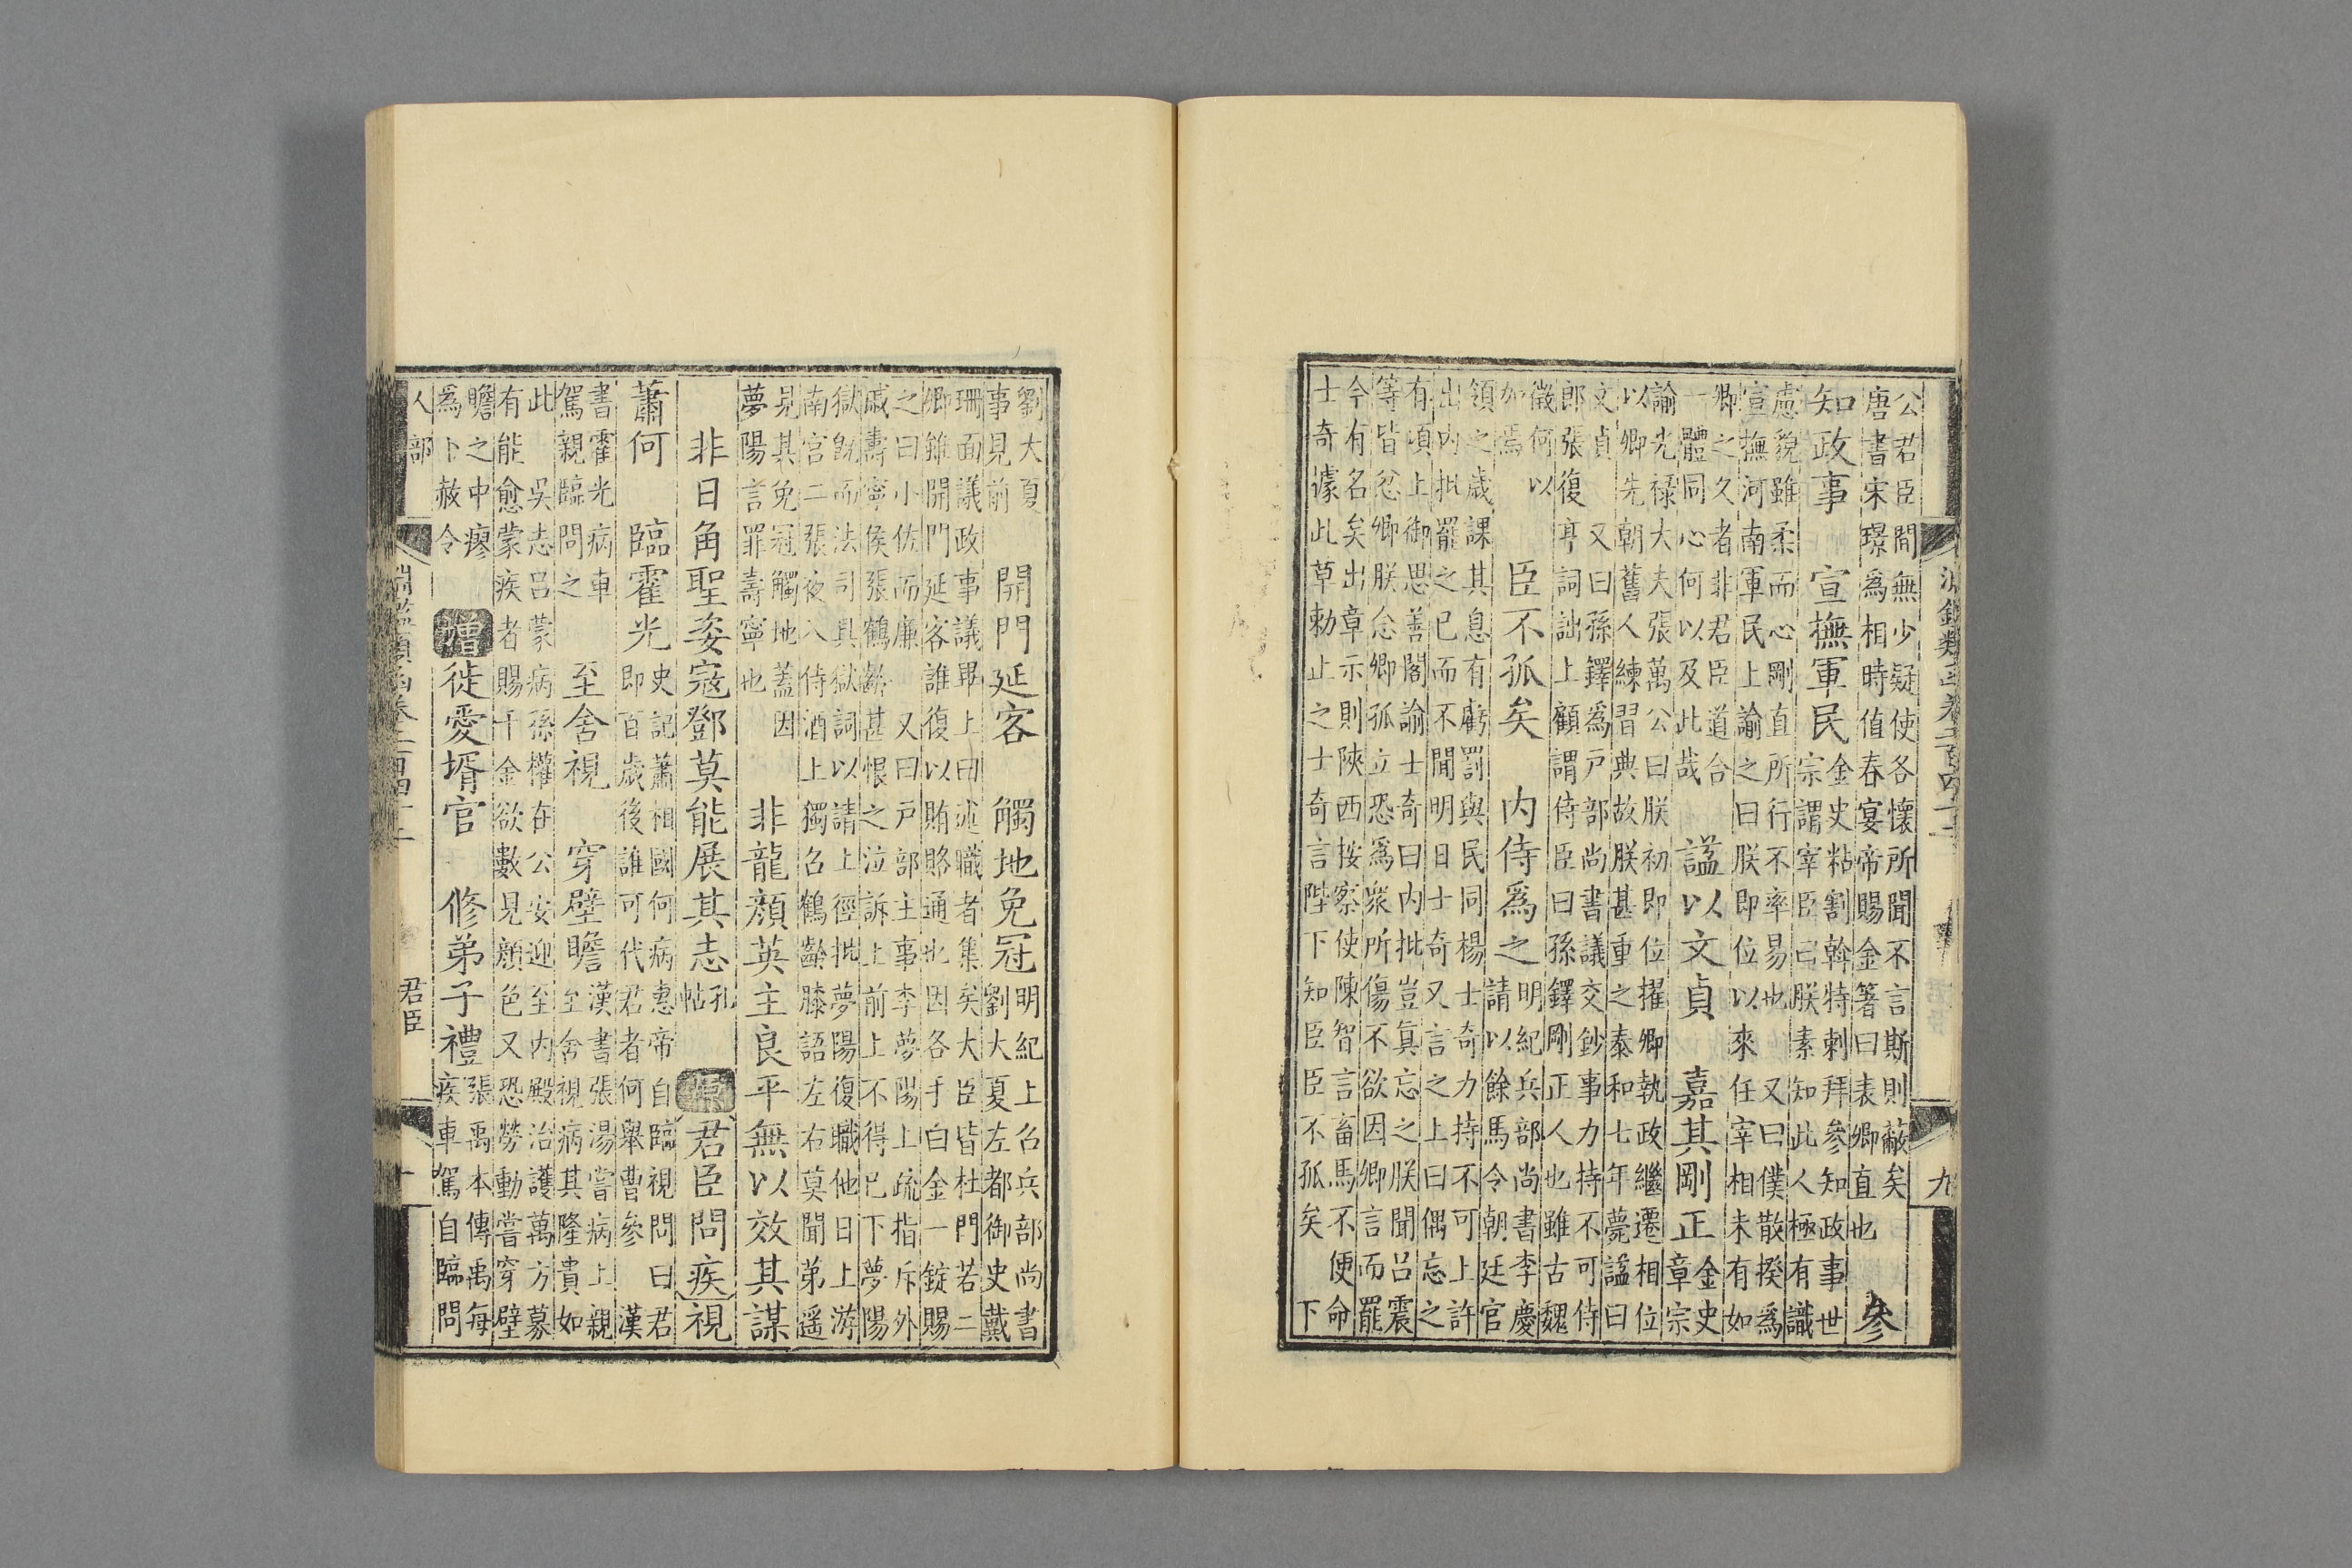 淵鑑類函卷二百四十二 九
公君臣間無少疑使各懷所聞不言斯則蔽矣
唐書宋璟為相時值春宴帝賜金箸曰表卿直也
參
知政事 宣撫軍民
金史粘割斡特剌拜參知政事世
宗謂宰臣曰朕素知此人極有識
慮貌雖柔而心剛直所行不率易也 又曰僕散揆為
宣撫河南軍民上諭之曰朕即位以來任宰相未有如
卿之久者非君臣道合
一體同心何以及此哉
謚以文貞 嘉其剛正
金史
章宗
諭光祿大夫張萬公曰朕初即位擢卿執政繼遷相位
以卿先朝舊人練習典故朕甚重之泰和七年薨謚曰
文貞 又曰孫鐸為戶部尚書議交鈔事力持不可侍
郎張復亨詞詘上顧謂侍臣曰孫鐸剛正人也雖古魏
徵何以
如焉
臣不孤矣 內侍為之
明紀兵部尚書李慶
請以餘馬令朝廷官
領之歲課其息有虧罰與民同楊士奇力持不可上許
出內批罷之已而不聞明日士奇又言之上曰偶忘之
有頃上御思善閣諭士奇曰內批豈真忘之朕聞呂震
等皆忿卿朕念卿孤立恐為衆所傷不欲因卿言而罷
今有名矣出章示則陝西按察使陳智言畜馬不便命
士奇據此草勅止之士奇言陛下知臣臣不孤矣 下
劉大夏
事見前
開門延客 觸地免冠
明紀上召兵部尚書
劉大夏左都御史戴
珊面議政事議畢上曰述職者集矣大臣皆杜門若二
卿雖開門延客誰復以賄賂通也因各手白金一錠賜
之曰小佐而廉 又曰戶部主事李夢陽上疏指斥外
戚壽寧侯張鶴齡甚恨之泣訴上前上不得已下夢陽
獄既而法司具獄詞以請上徑批夢陽復職他日上游
南宮二張夜入侍酒上獨召鶴齡膝語左右莫聞弟遥
見其免冠觸地蓋因
夢陽言罪壽寧也
非龍顏英主良平無以效其謀
非日角聖姿寇鄧莫能展其志
孔
帖
原 君臣問疾 視
蕭何 臨霍光
史記蕭相國何病惠帝自臨視問曰君
即百歲後誰可代君者何舉曹參 漢
書霍光病車
駕親臨問之
至舍視 穿壁瞻
漢書張湯嘗病上親
至舍視病其隆貴如
此 吳志呂蒙病孫權在公安迎至內殿治護萬方募
有能愈蒙疾者賜千金欲數見顏色又恐勞動嘗穿壁
瞻之中瘳
為卜赦令
增 徙愛壻官 修弟子禮
張禹本傳禹每
疾車駕自臨問
人部 淵鑑類函卷二百四十二 君臣